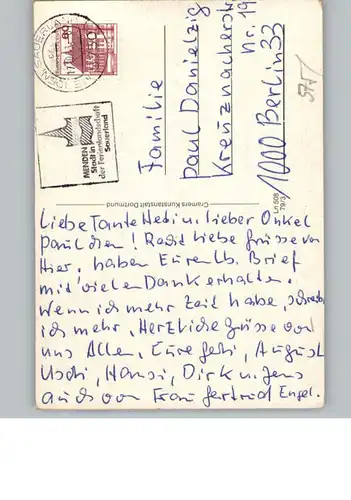 SAUERLAND
60
MENDEN
Stadt in
der Ferienlandschaft
Sauerland
Familie
Paul Danielzig
Kreuznacherstr.
Nr. 19
1000 Berlin 33
575
Cramers Kunstanstalt Dortmund
Ln 508
79/3
Liebe Tante Hedi u. lieber Onkel
Paulchen! Recht liebe Grüsse von
Hier, haben Euren lb. Brief
mit vielen Dank erhalten.
Wenn ich mehr Zeit habe, schreibe
ich mehr, Herzliche Grüsse von
uns Allen, Eure Gabi, August
Uschi, Hansi, Dirk u. Jens
auch von Frau Gertrud Engel.